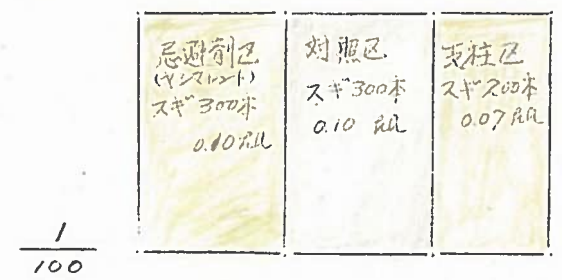 忌避剤区
(ヤシマレント)
スギ 300本
0.10 ha
対照区
スギ 300本
0.10 ha
支柱区
スギ 200本
0.07 ha
1
100